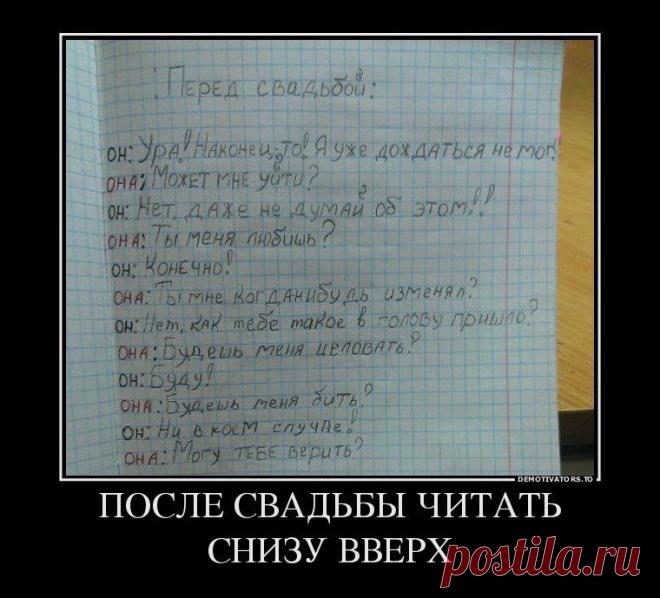 Перед свадьбой:
он: Ура! Наконец-то! Я уже дождаться не мог!
она: Может мне уйти?
он: Нет, даже не думай об этом!!
она: Ты меня любишь?
он: Конечно!
она: Ты мне когданибудь изменял?
он: Нет, как тебе такое в голову пришло?
она: Будешь меня целовать?
он: Буду!
она: Будешь меня бить?
он: Ни в коем случае!
она: Могу тебе верить?
DEMOTIVATORS.TO
ПОСЛЕ СВАДЬБЫ ЧИТАТЬ
СНИЗУ ВВЕРХ
postila.ru